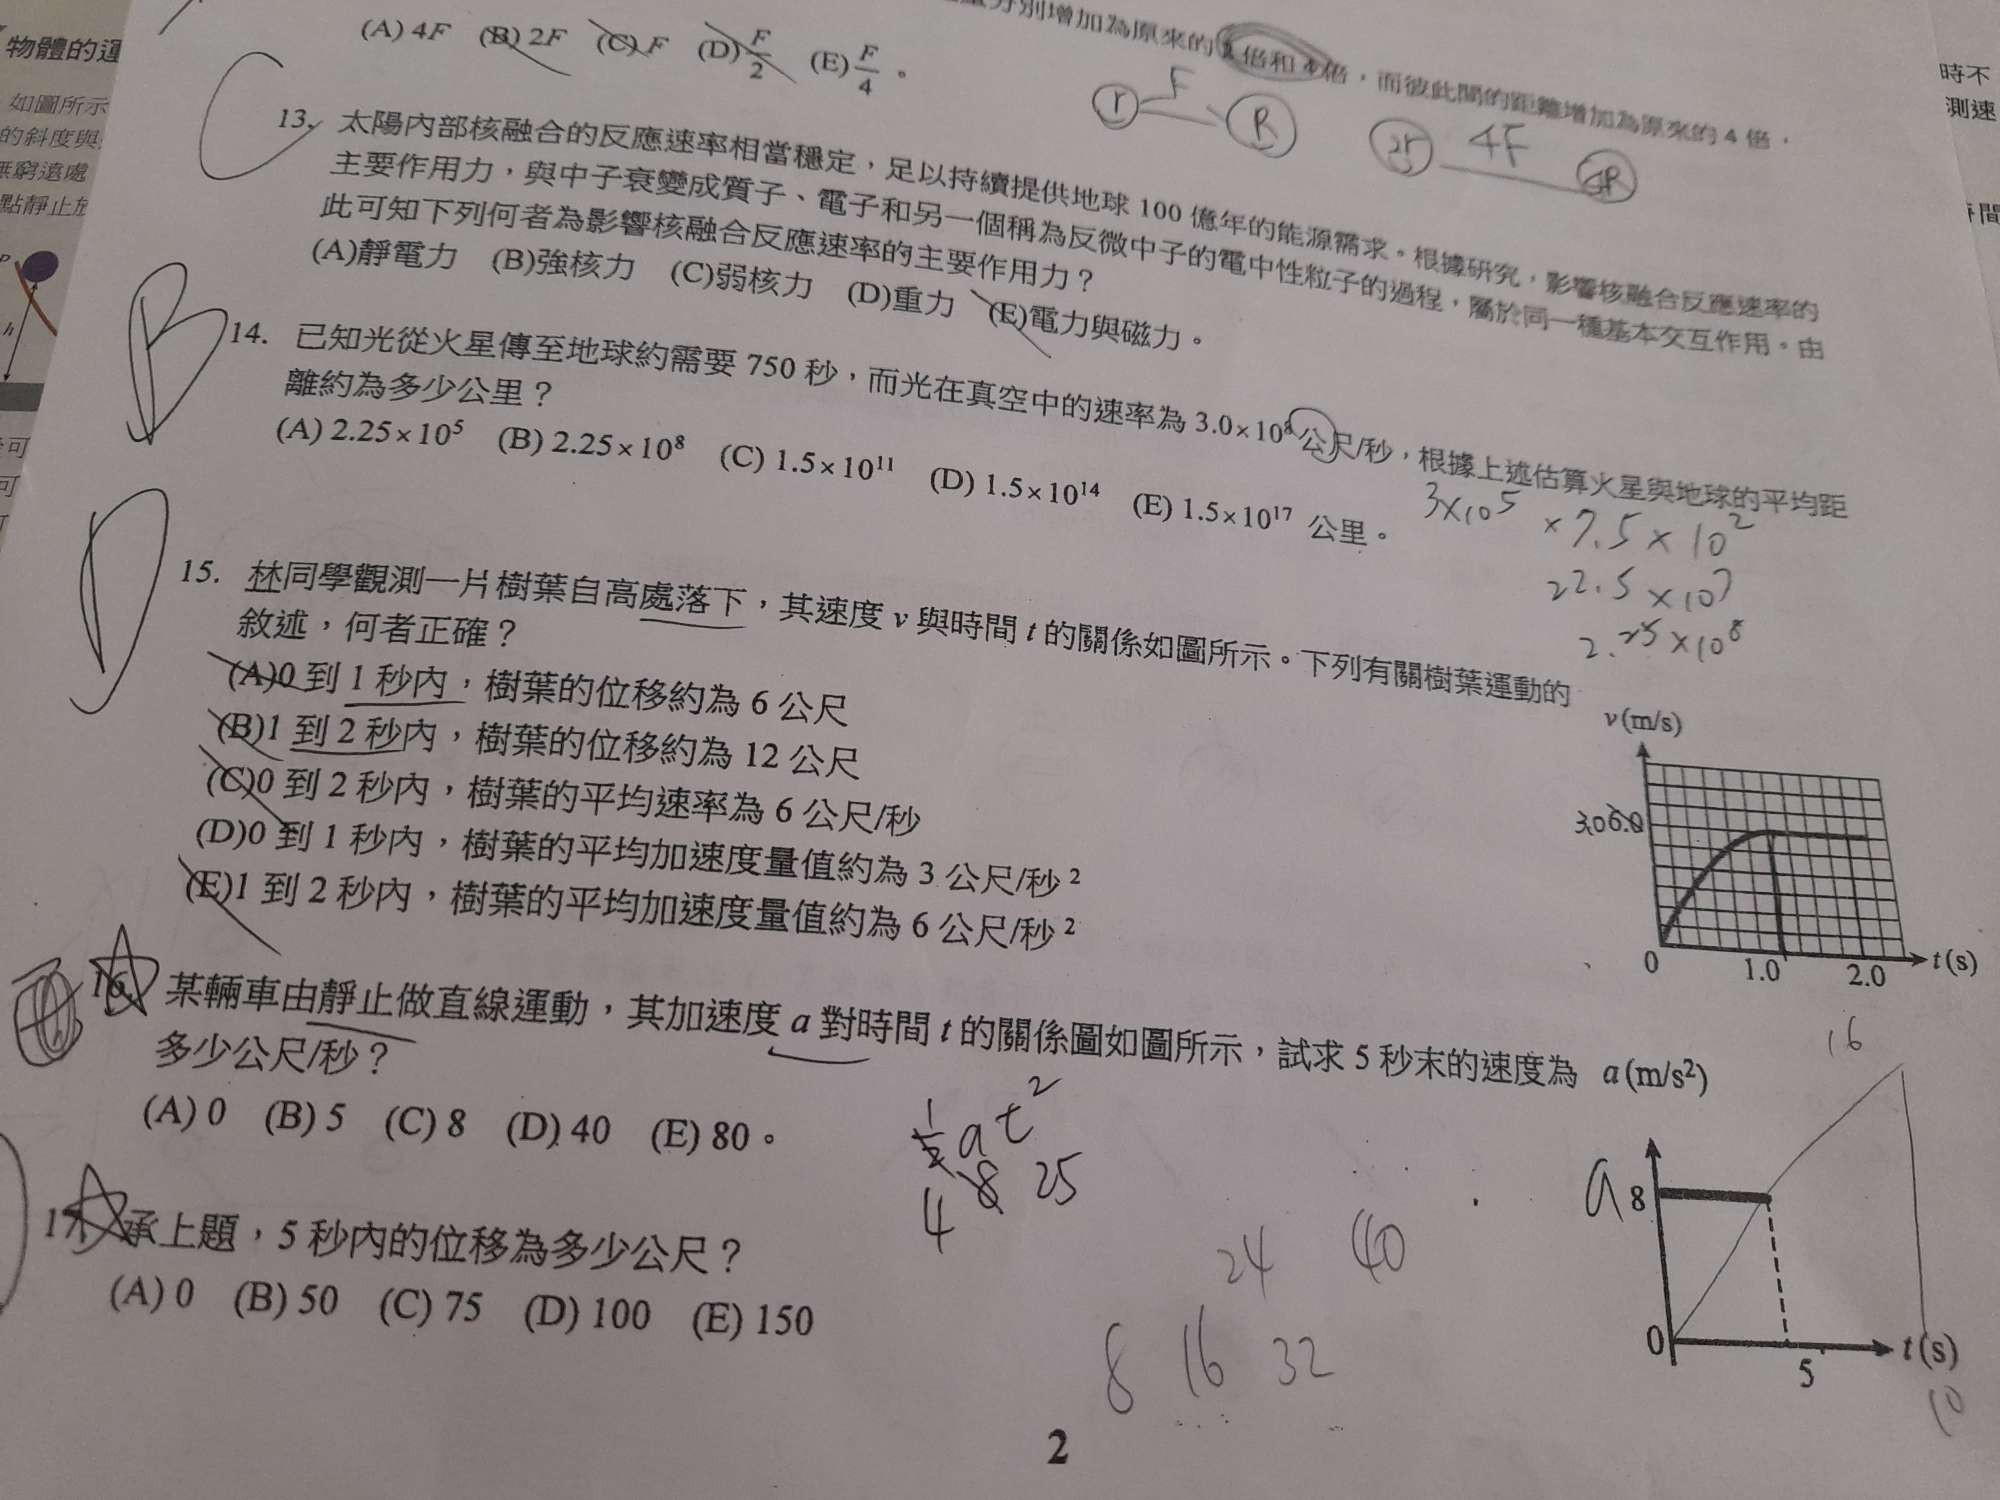 物體的運
如圖所示
的斜度與
無窮遠處
點靜止放
P
h
時不
測速
時間
分別增加為原來的 2 倍和 4 倍，而彼此間的距離增加為原來的 4 倍，
(A) 4F (B) 2F (C) F (D) F/2 (E) F/4 。
r F R 2r 4F
13. 太陽內部核融合的反應速率相當穩定，足以持續提供地球 100 億年的能源需求。根據研究，影響核融合反應速率的
主要作用力，與中子衰變成質子、電子和另一個稱為反微中子的電中性粒子的過程，屬於同一種基本交互作用。由
此可知下列何者為影響核融合反應速率的主要作用力？
(A)靜電力 (B)強核力 (C)弱核力 (D)重力 (E)電力與磁力。
C
B
14. 已知光從火星傳至地球約需要 750 秒，而光在真空中的速率為 3.0×10⁸ 公尺/秒，根據上述估算火星與地球的平均距
離約為多少公里？
(A) 2.25×10⁵ (B) 2.25×10⁸ (C) 1.5×10¹¹ (D) 1.5×10¹⁴ (E) 1.5×10¹⁷ 公里。
3×10⁵ ×7.5×10²
22.5×10⁷
2.25×10⁸
D
15. 林同學觀測一片樹葉自高處落下，其速度 v 與時間 t 的關係如圖所示。下列有關樹葉運動的
敘述，何者正確？
(A)0 到 1 秒內，樹葉的位移約為 6 公尺
(B)1 到 2 秒內，樹葉的位移約為 12 公尺
(C)0 到 2 秒內，樹葉的平均速率為 6 公尺/秒
(D)0 到 1 秒內，樹葉的平均加速度量值約為 3 公尺/秒²
(E)1 到 2 秒內，樹葉的平均加速度量值約為 6 公尺/秒²
v(m/s)
3.0 6.0
0 1.0 2.0 t(s)
16. 某輛車由靜止做直線運動，其加速度 a 對時間 t 的關係圖如圖所示，試求 5 秒末的速度為
多少公尺/秒？
(A) 0 (B) 5 (C) 8 (D) 40 (E) 80。
½at²
8 25
4
24 40
8 16 32
16
a(m/s²)
a 8
0 5 t(s)
10
17. 承上題，5 秒內的位移為多少公尺？
(A) 0 (B) 50 (C) 75 (D) 100 (E) 150
2